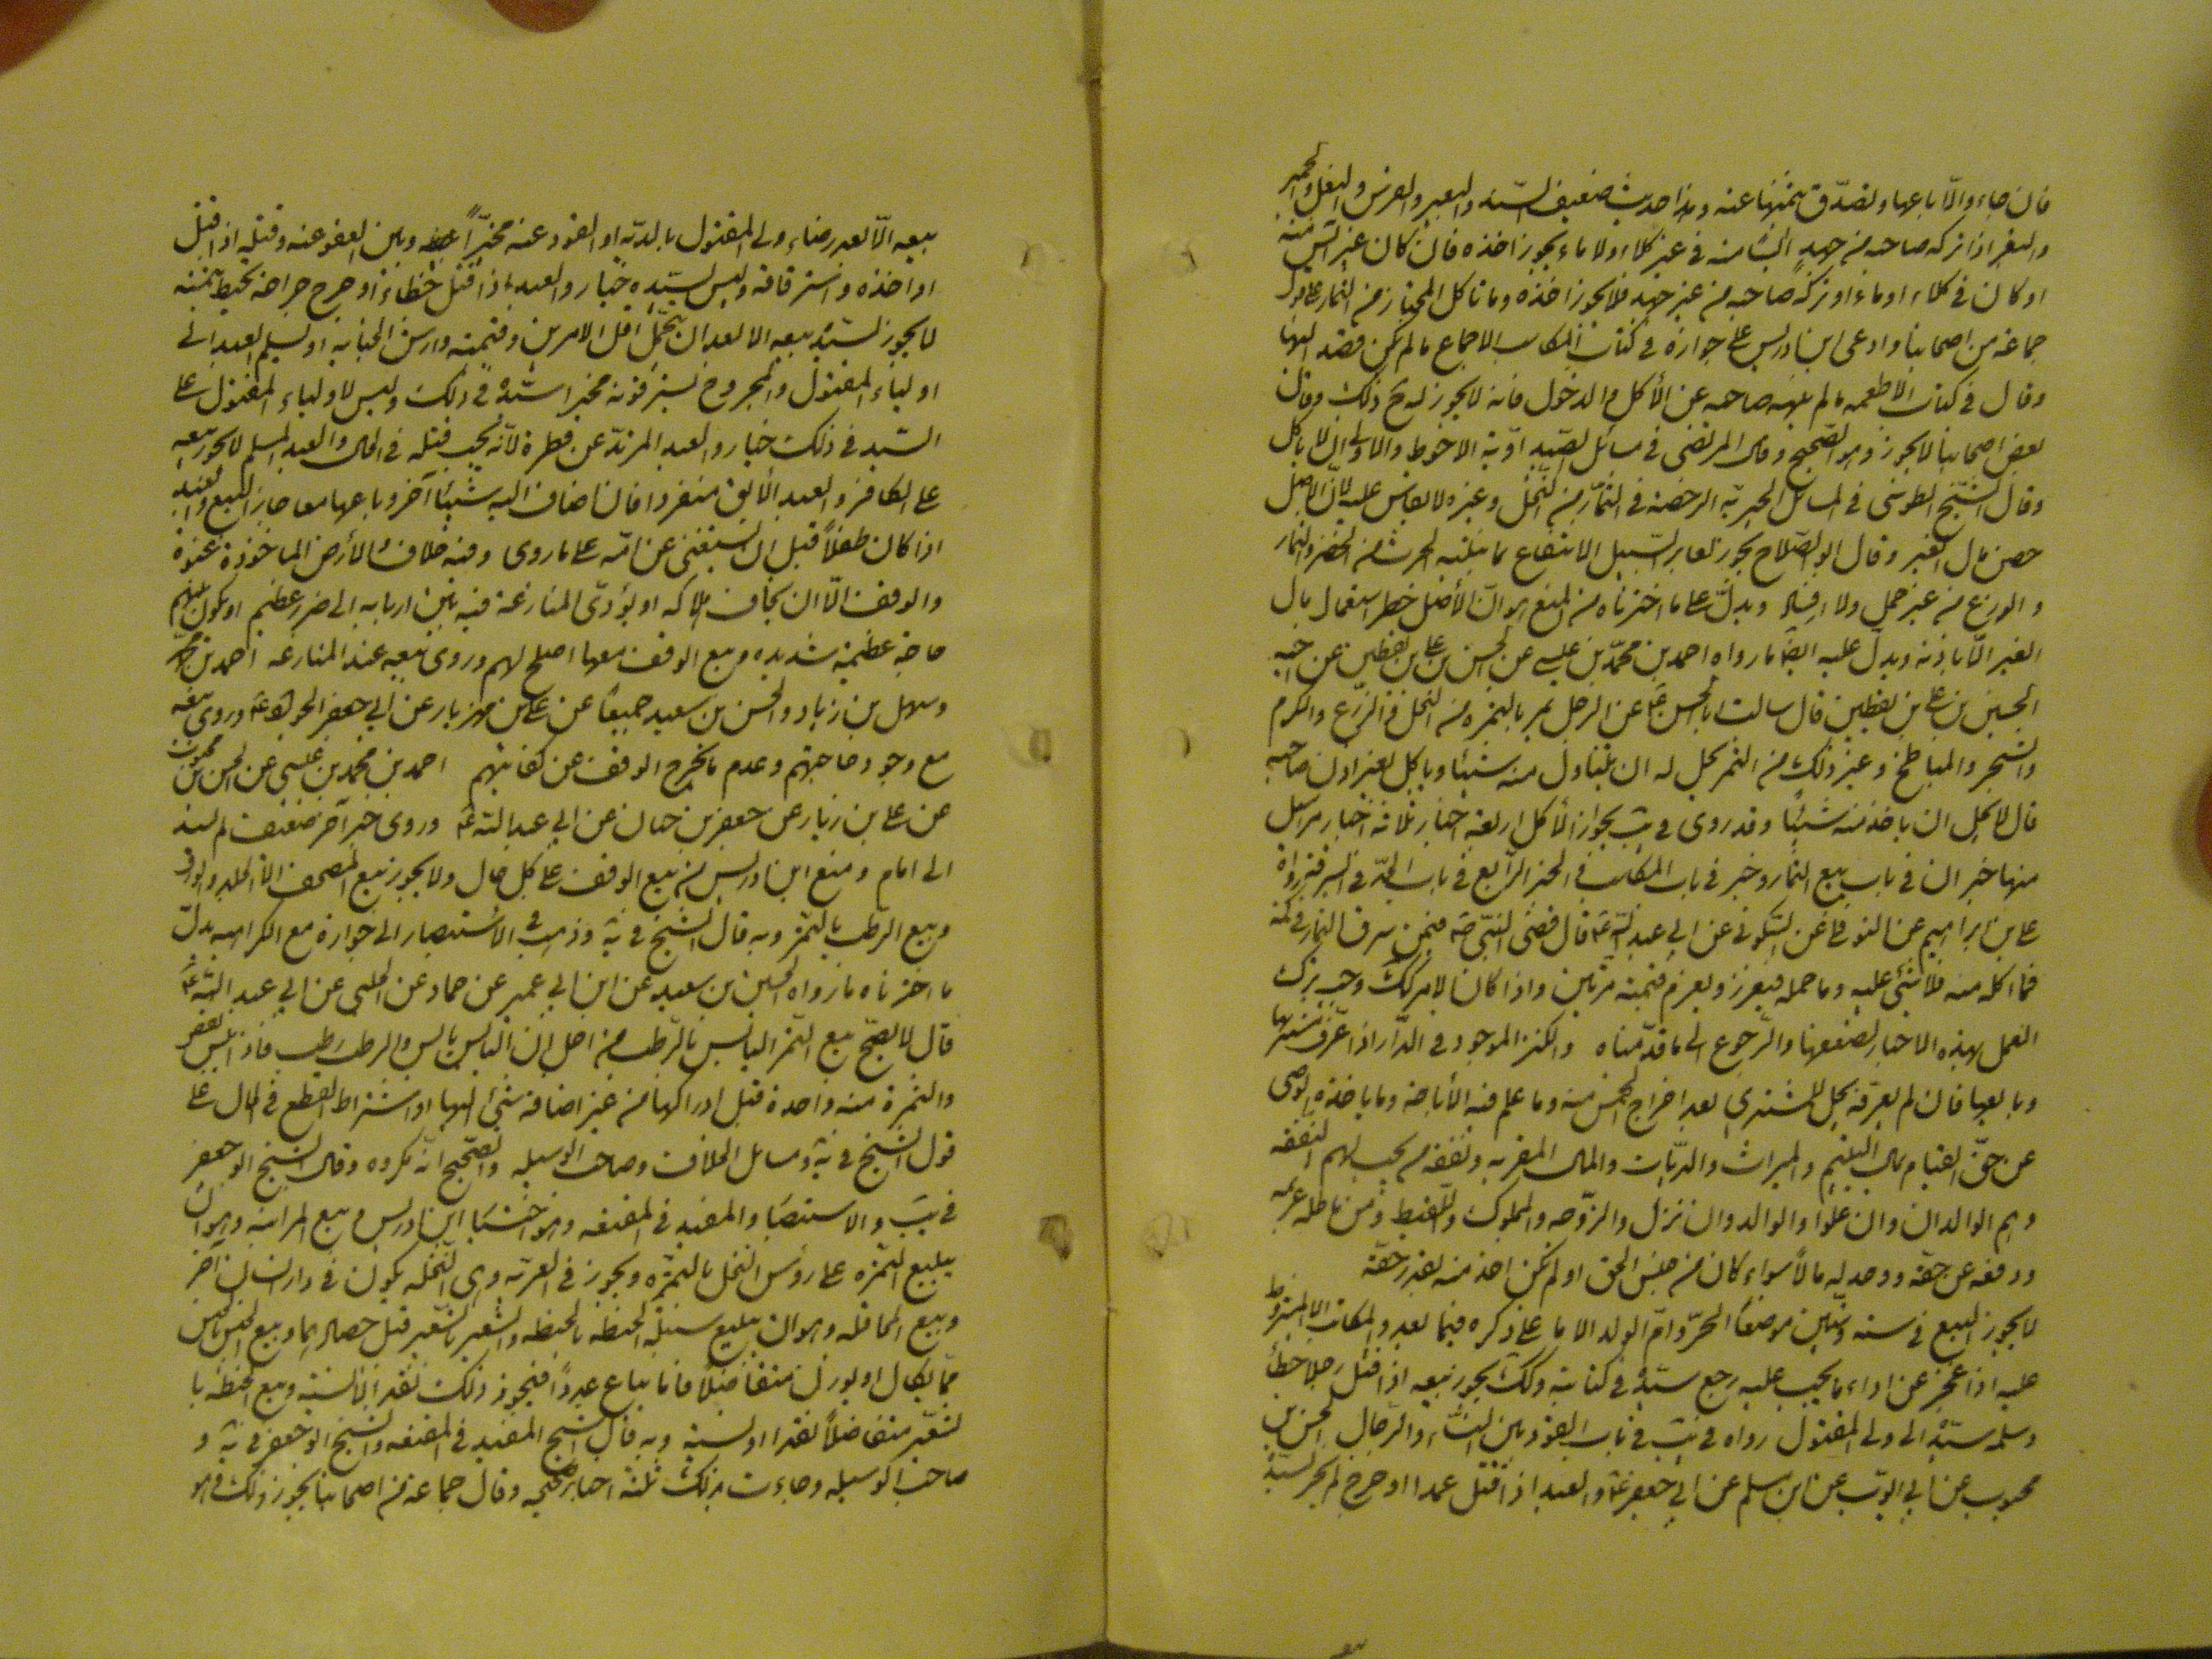 فان جاء والّا باعها وتصدّق بثمنها عنه وهذا حديث ضعيف السّند والبعير والفرس والبغل والحمير
والبقر اذا تركه صاحبه من جهد البتّا منه فى غير كلاء ولا ماء يجوز اخذه فان كان غير آيس منه
او كان فى كلاء او ماء او تركه صاحبه من غير جهد فلا يجوز اخذه وما تاكل المجتاز من الثمار على قول
جماعة من اصحابنا وادعى ابن ادريس على جوازه فى كتاب المكاسب الاجماع ما لم يكن قصد اليها
وقال فى كتاب الاطعمه ما لم ينهه صاحبه عن الأكل والدخول فانه لا يجوز له ح ذلك وقال
بعض اصحابنا لا يجوز وهو الصّحيح وقال المرتضى فى مسائل الاحوط والاولى ان لا ياكل
وقال الشّيخ الطوسى فى المسائل الحيريّة الرخصة فى الثّمار من النّخل وغيره لا يقاس عليه لانّ الاصل
حصر مال الغير وقال ابو الصّلاح يجوز لعابر السّبيل الانتفاع بما ينبته الحرث من الخضر والثمار
والزرع من غير حمل ولا افساد ويدلّ على ما اخترناه من المنع هو انّ الأصل حظر استعمال مال
الغير الّا باذنه ويدلّ عليه ايضًا ما رواه احمد بن محمّد بن عيسى عن الحسن بن على بن يقطين عن اخيه
الحسين بن على بن يقطين قال سالت ابا الحسن ع عن الرجل يمر بالثمره من النخل والزّرع والكرم
والشجر والمباطخ وغير ذلك من الثمر يحل له ان يتناول منه شيئا وياكل بغير اذن صاحبه
قال لا يحل ان ياخذ منه شيئًا وقد روى فى يب بجواز الأكل اربعة اخبار ثلاثة اخبار مراسيل
منها خبران فى باب بيع الثمار وخبر فى باب المكاسب والخبر الرّابع فى باب الحدّ فى السرقة رواه
على بن ابراهيم عن النوفلى عن السّكونى عن ابى عبد الله ع قال قضى النّبىّ ص فيمن سرق الثمار فى كمه
فما اكله منه فلا شئ عليه وما حمله فيعزر ويغرم قيمته مرّتين واذا كان الامر كك وجب ترك
العمل بهذه الاخبار لضعفها والرّجوع الى ما قدّمناه والكنز الموجود فى الدّار اذا عرّفه مشتريها
وبايعها فان لم يعرفه يحل للمشترى بعد اخراج الخمس منه وما علم فيه الأباحه وما ياخذه الوصى
عن حقّ القيام بمال اليتيم والميراث والديّات والمال المقربه ونفقة من يجب لهم النفقه
وهم الوالدان وان علوا والوالد وان نزل والزّوجه والمملوك واللّقيط ومن ماطله غريمه
ودفعه عن حقّه ووجد له مالاً سواء كان من جنس الحق او لم يكن اخذ منه بقدر حقّه
لا يجوز البيع فى ستة وثلثين موضعًا الحرّ وامّ الولد الا ما على ذكره فيما بعد والمكاتب الا المشروط
عليه اذا عجز عن اداء ما يجب عليه رجع سيّده فى كتابته وكك يجوز بيعه اذا قتل رجلا خطأ
وسلمه سيّده الى ولى المقتول رواه فى يب فى باب القود بين النساء والرّجال الحسن بن
محبوب عن ابى ايوّب عن ابن مسلم عن ابى جعفر ع والعبد اذا قتل عمدا او جرح لم يجز لسيّده
بيعه الّا بعد رضاء ولى المقتول بالديّه او العفو عنه مخيّرًا بين العفو عنه وقتله اذا قتل
او اخذه واسترقاقه وليس لسيّده خيار والعبد اذا قتل خطاءً او جرح جراحة يحيط بثمنه
لا يجوز لسيّده بيعه الا بعد ان يتحمّل اقل الامرين وقيمته وارش الجنايه او تسليم العبد الى
اولياء المقتول والمجروح يسترقونه مخيرا سيّده فى ذلك وليس لاولياء المقتول على
السّيد فى ذلك خيار والعبد المرتدّ عن فطرة لانّه يجب قتله فى الحال والعبد المسلم لا يجوز بيعه
على الكافر والعبد الآبق منفردا فان اضاف اليه شيئًا آخر وباعها معا جاز البيع والعبد
اذا كان طفلاً قبل ان يستغنى عن امّه على ما روى وفيه خلاف والأرض الماخوذة عنوة
والوقف الّا ان يخاف هلاكه او يؤدّى المنازعة فيه بين اربابه الى ضرر عظيم او يكون لهم
حاجة عظيمة شديده وبيع الوقف معها اصلح لهم وروى بيعه عند المنازعه احمد بن محمّد
وسهل بن زياد والحسن بن سعيد جميعًا عن على بن مهزيار عن ابى جعفر الجواد ع وروى بيعه
مع وجود حاجتهم وعدم ما يخرج الوقف عن كفايتهم احمد بن محمد بن عيسى عن الحسن بن محبوب
عن على بن زياد عن جعفر بن حنان عن ابى عبد الله ع وروى خبر آخر ضعيف لم يسند
الى امام ومنع ابن ادريس من بيع الوقف على كل حال ولا يجوز بيع المصحف الّا الجلد والورق
وبيع الرّطب بالتمر وبه قال الشّيخ فى ية وذهب فى الأستبصار الى جوازه مع الكراهيه يدلّ
ما اخترناه ما رواه الحسين بن سعيد عن ابن ابى عمير عن حماد عن الحلبى عن ابى عبد الله ع
قال لا يصحّ بيع التّمر اليابس بالرّطب من اجل ان اليابس يابس والرطب رطب فاذا يبس نقص
والثمرة سنه واحدة قبل ادراكها من غير اضافة شئ اليها او اشتراط القطع فى الحال على
قول الشّيخ فى ية ومسائل الخلاف وصاحب الوسيله والصّحيح انّه مكروه وقال الشيخ ابو جعفر
فى يب والاستبصار والمفيد فى المقنعه وهو اختيار ابن ادريس وبيع المزابنه وهو ان
يبيع الثمره على رؤس النخل بالثمره ويجوز فى العريّه وهى النّخله يكون فى دار انسان آخر
وبيع المحاقله وهو ان يبيع سنبلة الحنطه بالحنطه والشّعير بالشّعير قبل حصادهما وبيع الجنس بالجنس
ممّا يكال او يوزن متفاضلاً فامّا ما يباع عددًا فيجوز ذلك نقدا لا نسيئة وبيع الحنطة با
لشعير متفاضلاً نقدا او نسيئه وبه قال الشيخ المفيد فى المقنعه والشيخ ابو جعفر فى ية و
صاحب الوسيله وجاءت بذلك ثلثة اخبار صحيحه وقال جماعة من اصحابنا يجوز ذلك وهو